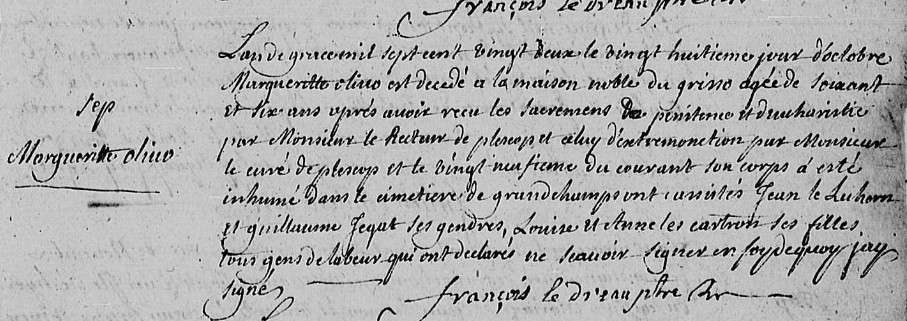 françois le dreau ptre
Lan de grace mil sept cent vingt deux le vingt huitieme jour d'octobre
Margueritte olivo est decedé a la maison noble du grisso agée de soixant
et six ans aprés avoir recu les sacremens de penitence et d'eucharistie
par Monsieur le Recteur de plescop et celuy d'extremonction par Monsieur
le curé de plescop et le vingt neufieme du courant son corps á esté
inhumé dans le cimetiere de grandchamps ont assistés Jean le
et guillaume Jegat ses gendres, Louise et Anne les cartron ses filles
tous gens de labeur qui ont declarés ne scavoir signer en foy de quoy jay
signé
sep
Margueritte olivo
françois le dreau ptre